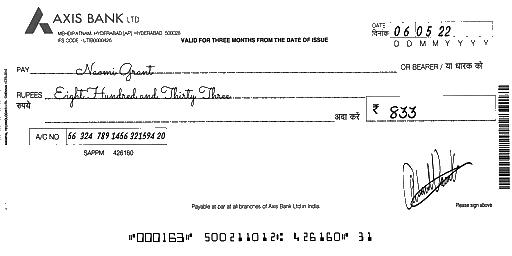 AXIS BANK LTD
MEHDIPATNAM, HYDERABAD [AP] - HYDERABAD 500028
IFS CODE - UTIB0000426
VALID FOR THREE MONTHS FROM THE DATE OF ISSUE
DATE
दिनांक 06 05 22
D D M M Y Y Y Y
PAY Naomi Grant OR BEARER / या धारक को
RUPEES Eight Hundred and Thirty Three
रुपये अदा करें ₹ 833
A/C NO 56 324 789 1456 321594 20
SAPPM 426160
Payable at par at all branches of Axis Bank Ltd in India.
Please sign above
"000163" 500211012: 426160" 31